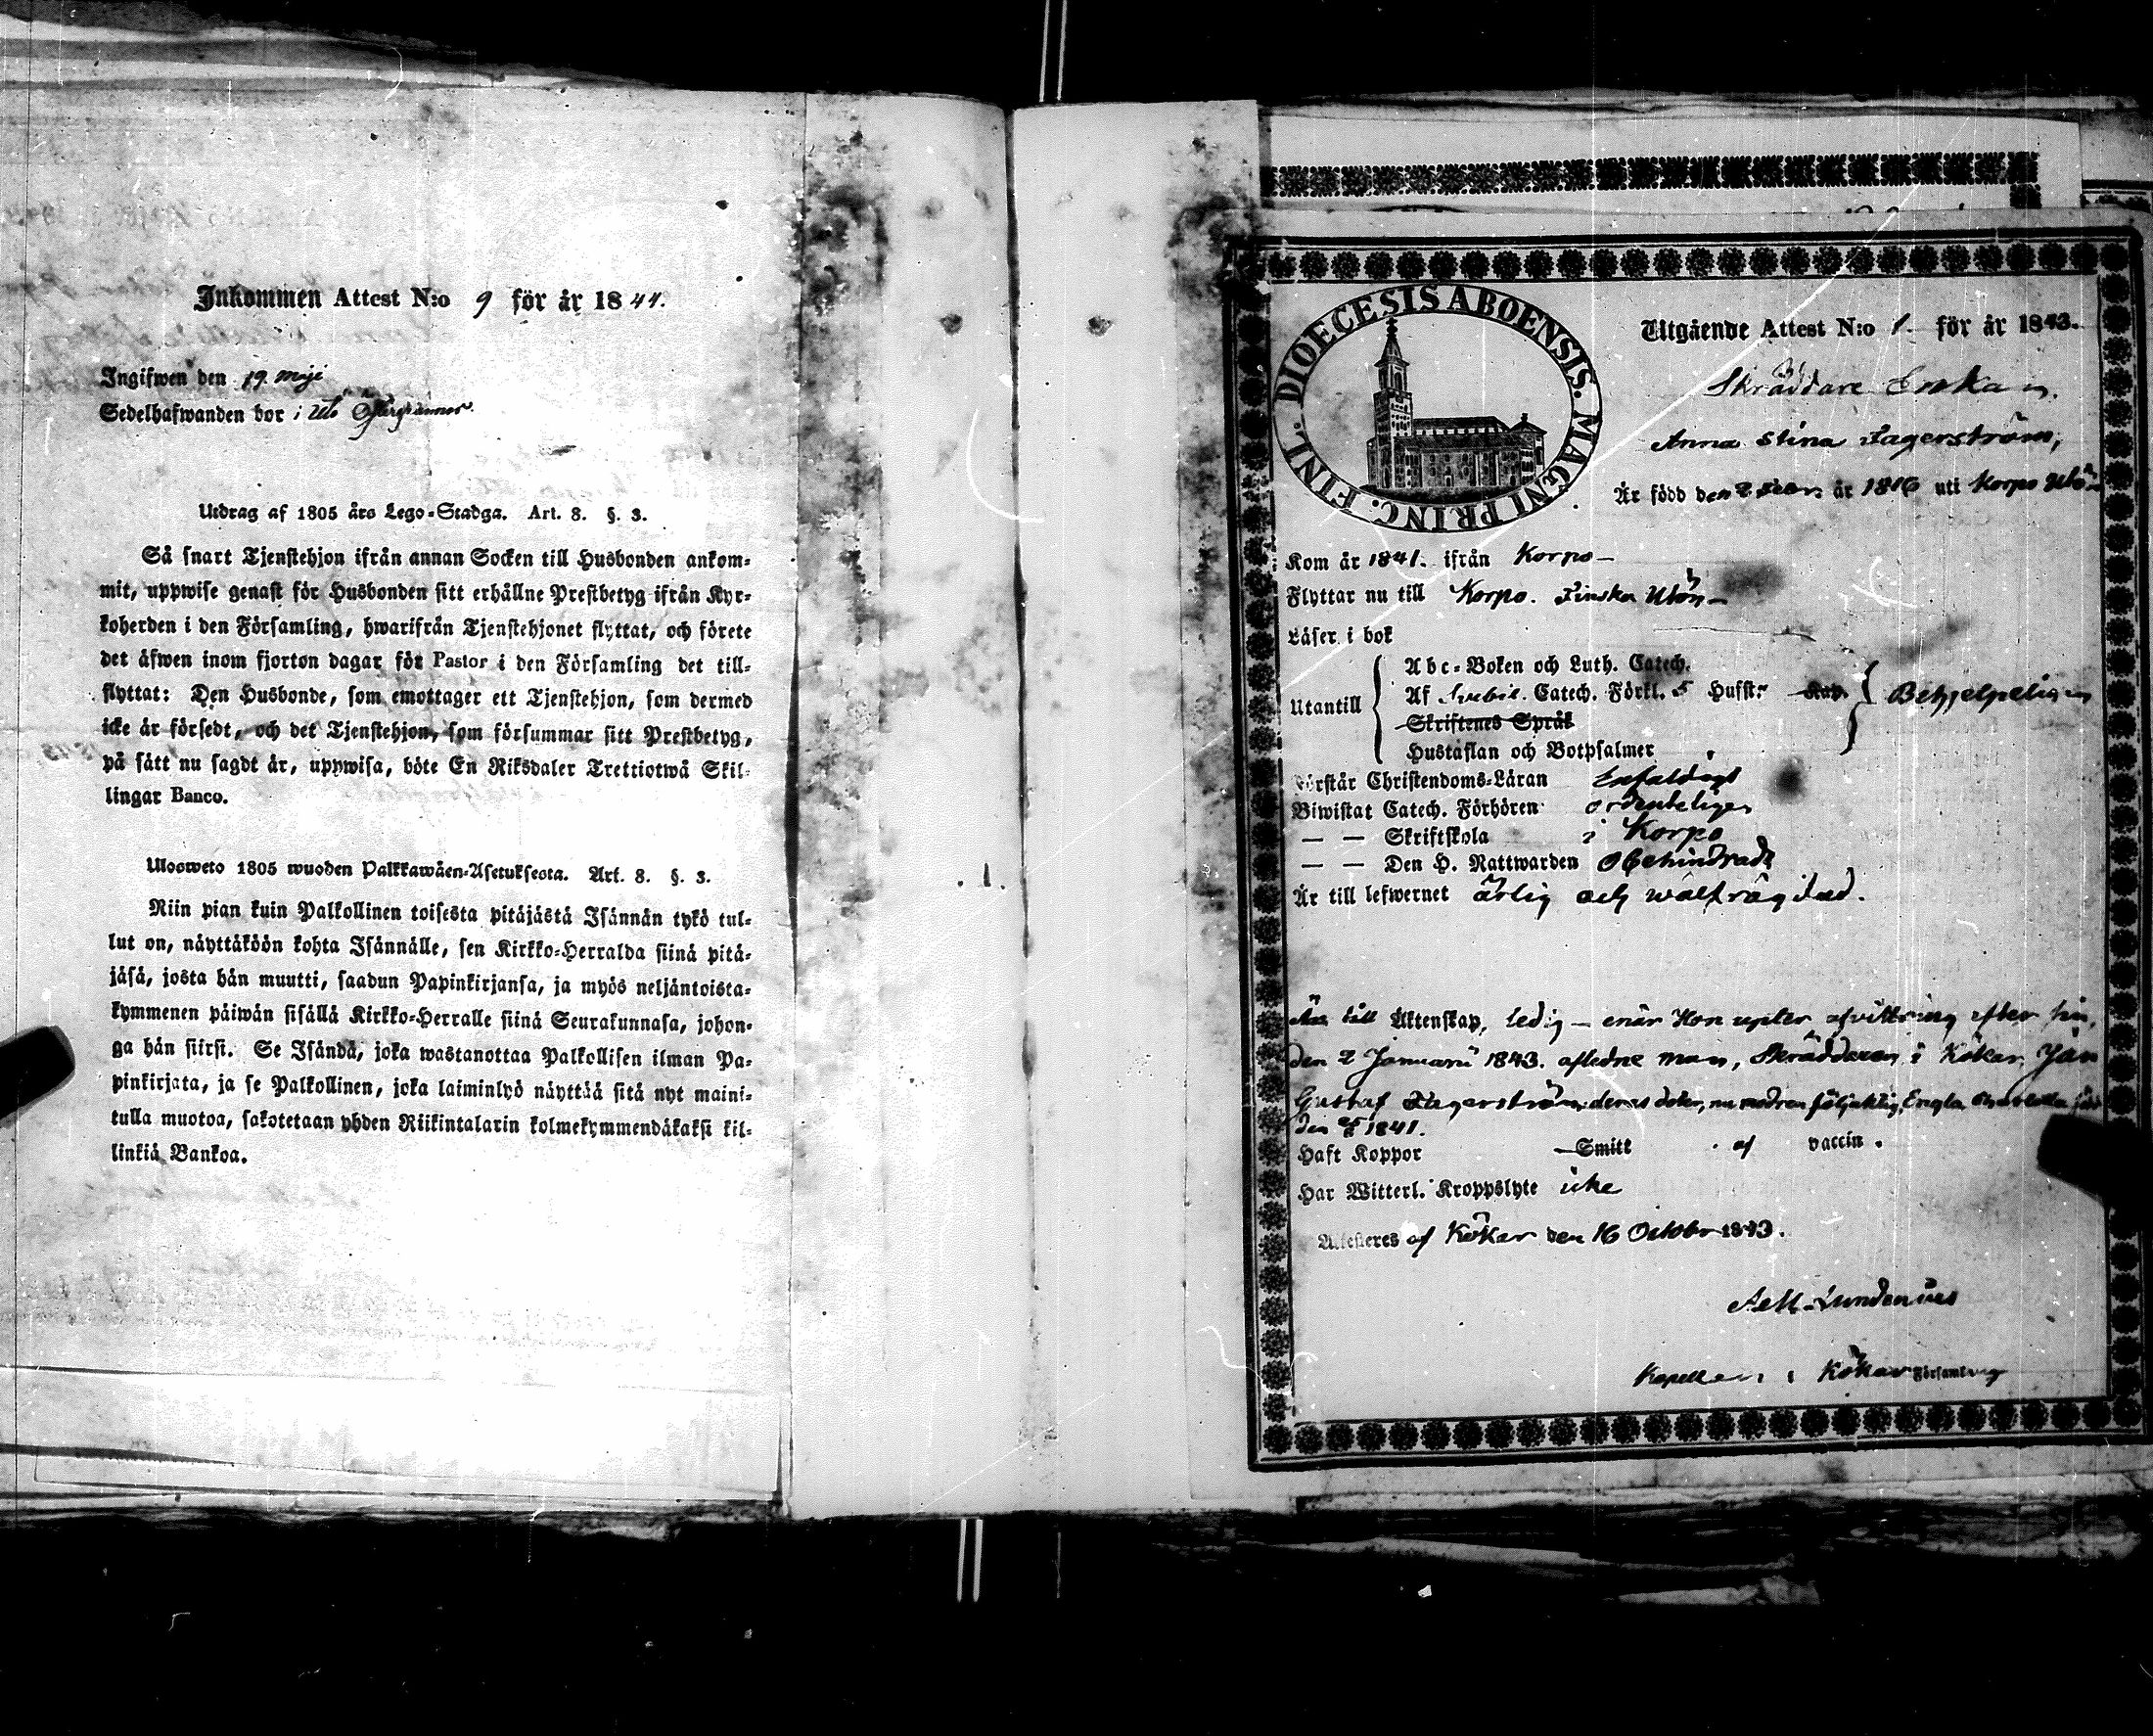 Inkommen Attest N:o 9 för år 1844.
Ingifwen den 19 Maji
Sedelhafwanden bor i Utö
Utdrag af 1805 års Lego-Stadga. Art. 8. §. 3.
Så snart Tjenstehjon ifrån annan Socken till Husbonden ankom-
mit, uppwise genast för Husbonden sitt erhållne Prestbetyg ifrån Kyr-
koherden i den Församling, hwarifrån Tjenstehjonet flyttat, och förete
det äfwen inom fjorton dagar för Pastor i den Församling det till-
flyttat: Den Husbonde, som emottager ett Tjenstehjon, som dermed
icke är försedt, och det Tjenstehjon, som försummar sitt Prestbetyg,
på sätt nu sagdt är, uppwisa, böte En Riksdaler Trettiotwå Skil-
lingar Banco.
Ulosweto 1805 wuoden Palkkawäen-Asetuksesta. Art. 8. §. 3.
Niin pian kuin Palkollinen toisesta pitäjästä Isännän tykö tul-
lut on, näyttäköön kohta Isännälle, sen Kirkko-Herralda siinä pitä-
jäsä, josta hän muutti, saadun Papinkirjansa, ja myös neljäntoista-
kymmenen päiwän sisällä Kirkko-Herralle siinä Seurakunnasa, johon-
ga hän siirsi. Se Isändä, joka wastanottaa Palkollisen ilman Pa-
pinkirjata, ja se Palkollinen, joka laiminlyö näyttää sitä nyt maini-
tulla muotoa, sakotetaan yhden Riikintalarin kolmekymmendäkaksi kil-
linkiä Bankoa.
. 1.
DIOECESIS ABOENSIS. MAGNI PRINC. FINL.
Utgående Attest N:o 1. för år 1843.
Skräddare Enkan
Anna Stina Fagerström,
Är född den 2 år 1816 uti Korpo Utö
Kom år 1841. ifrån Korpo –
Flyttar nu till Korpo. Finska Utön –
Läser i bok
Utantill
Abc-Boken och Luth. Catech.
Af Svebil. Catech. Förkl. 5 Hufst: Kap.
Skriftenes Språk
Hustaflan och Botpsalmer
Behjelpeligen
Förstår Christendoms-Läran Enfaldigt
Biwistat Catech. Förhören ordenteligen
— — Skriftskola i Korpo
— — Den H. Nattwarden Obehindradt
Är till lefwernet ärlig och wälfrägdad.
Är till Äktenskap, ledig – enär Hon undler afvittring efter sin,
den 2 Januarii 1843. aflidne man, Skräddaren i Kökar, Jan
Gustaf Fagerström; deras doter, nu modren följaktig, Engla Charlotta född
den 1841.
Haft Koppor Smitt af vaccin.
Har Witterl. Kroppslyte icke
Attesteres af Kökar den 16 October 1843.
Lundenius
Kapellan i Kökar Församling